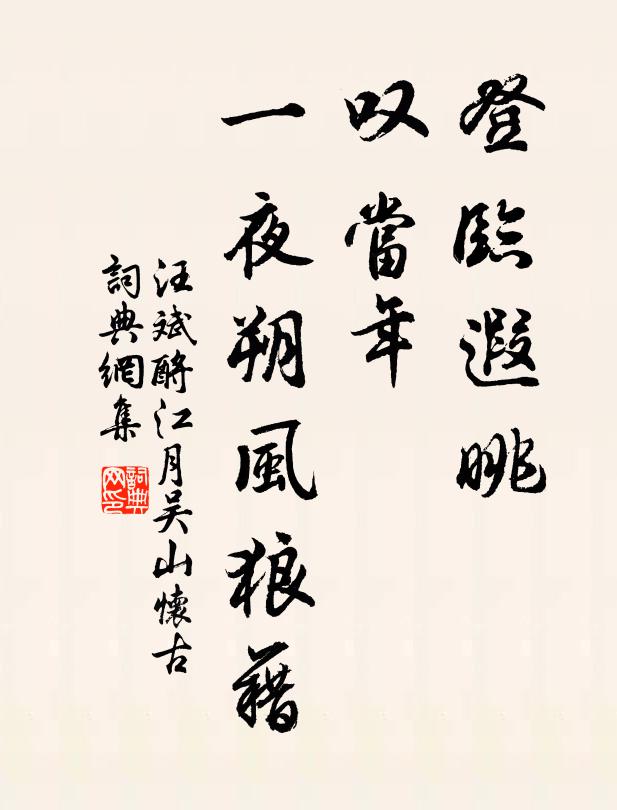 登臨遐眺
叹當年
一夜朔風狼藉
汪斌酹江月吴山懷古
詞典網集
詞典网印